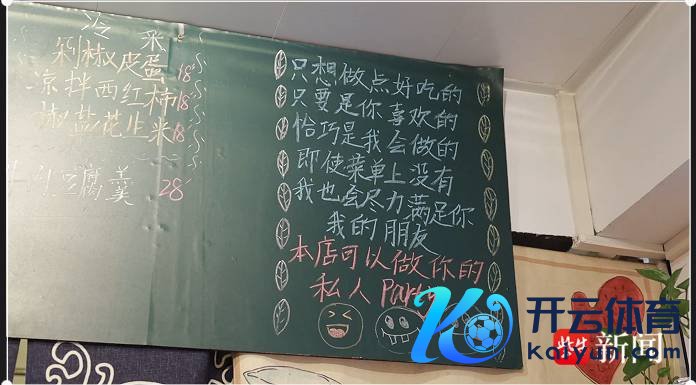 冷菜
剁椒皮蛋 18
凉拌西红柿 18
椒盐花生米 18
豆腐羹 28
只想做点好吃的
只要是你喜欢的
恰巧是我会做的
即使菜单上没有
我也会尽力满足你
我的朋友
本店可以做你的
私人Party
开云体育
Kaiyun.com
紫牛新闻